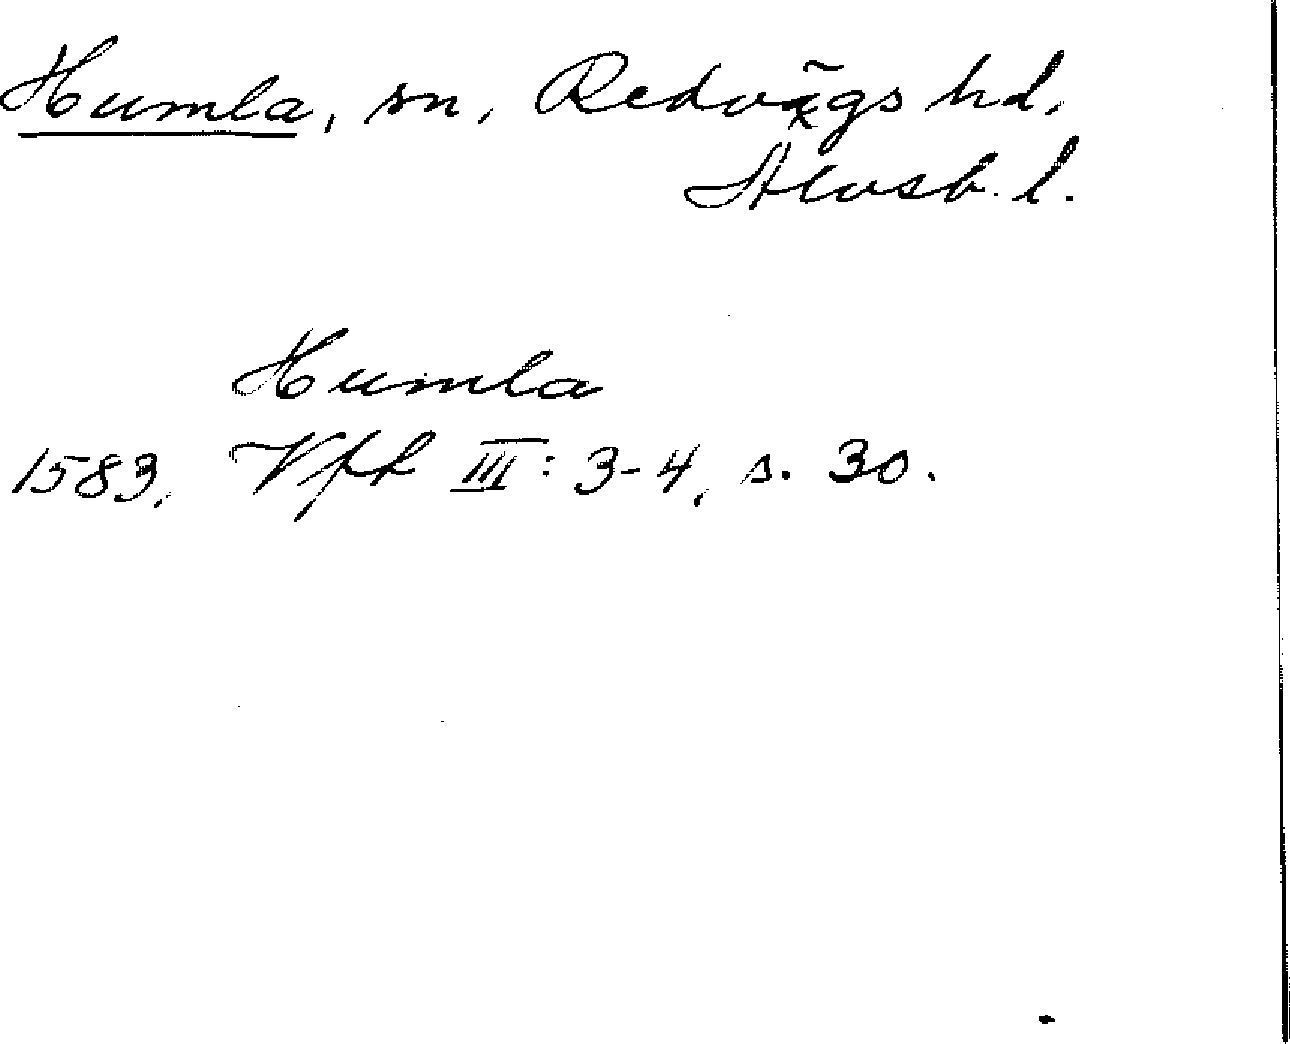 Humla, sn, Redvägs hd,
Älvsb. l.
Humla
1583, Vfh III: 3-4, s. 30.